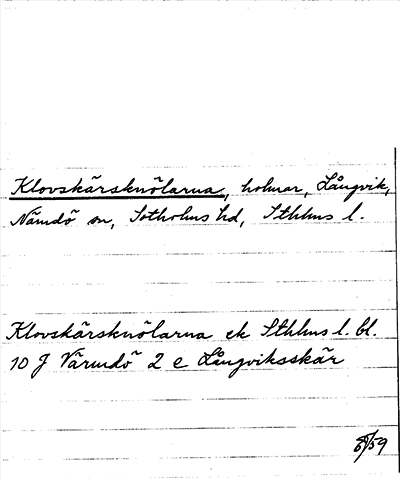 Klovskärsknölarna, holmar, Långvik,
Nämdö sn, Sotholms hd, Sthlms l.
Klovskärsknölarna ek Sthlms l. bl.
10 J Värmdö 2 e Långviksskär
/59